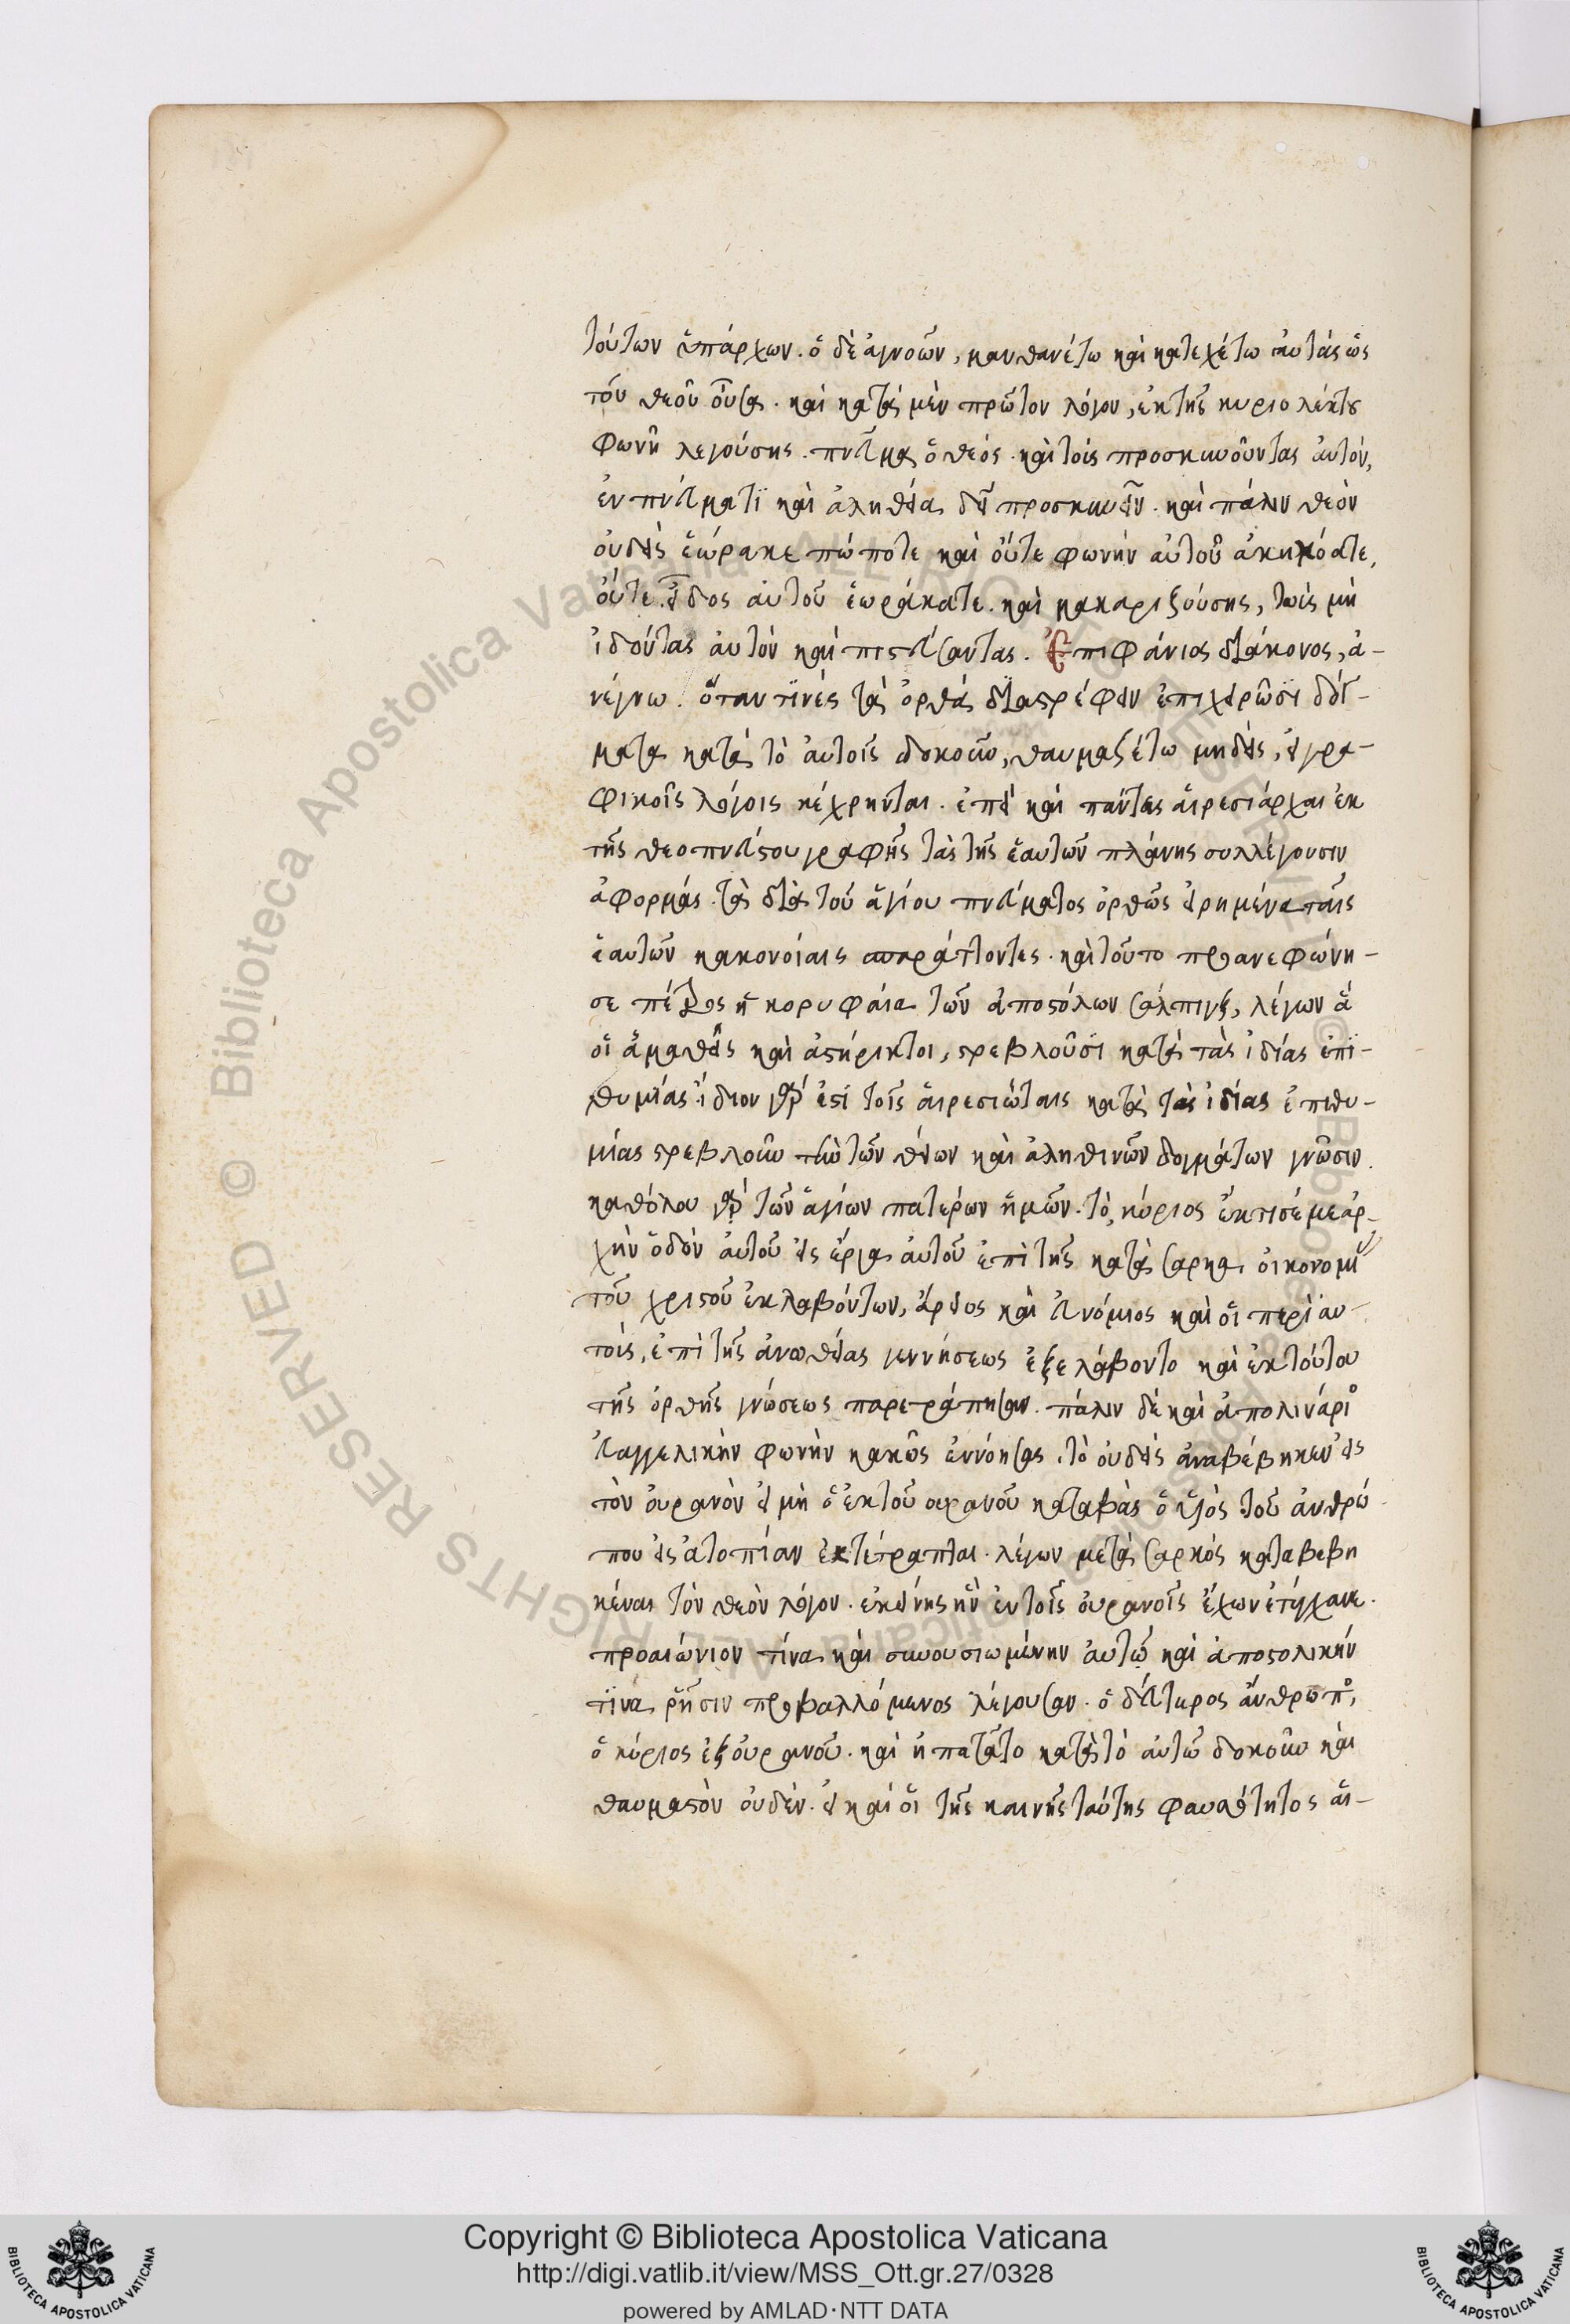 τούτων ὑπάρχων. ὁ δὲ ἀγνοῶν, μανθανέτω καὶ κατεχέτω αὐτὰς ὡς
τοῦ θεοῦ οὔσας. καὶ κατὰ μὲν πρῶτον λόγον, ἐκ τῆς κυριολέκτου
φωνῆς λεγούσης. πνεῦμα ὁ θεός. καὶ τοὺς προσκυνοῦντας αὐτόν,
ἐν πνεύματι καὶ ἀληθεία δεῖ προσκυνεῖν. καὶ πάλιν θεὸν
οὐδεὶς ἑώρακε πώποτε καὶ οὔτε φωνὴν αὐτοῦ ἀκηκόατε,
οὔτε εἶδος αὐτοῦ ἑωράκατε. καὶ μακαριζούσης, τοὺς μὴ
ἰδόντας αὐτὸν καὶ πιστεύσαντας. Ἐπιφάνιος διάκονος, ἀ-
νέγνω. ὅταν τινὲς τὰ ὀρθὰ διαστρέφειν ἐπιχειρῶσι δόγ-
ματα κατὰ τὸ αὐτοῖς δοκοῦν, θαυμαζέτω μηδείς, εἰ γρα-
φικοῖς λόγοις κέχρηνται. ἐπεὶ καὶ πάντες αἱρεσιάρχαι ἐκ
τῆς θεοπνεύστου γραφῆς τὰς τῆς ἑαυτῶν πλάνης συλλέγουσιν
ἀφορμάς. τὰ διὰ τοῦ ἁγίου πνεύματος ὀρθῶς εἰρημένα ταῖς
ἑαυτῶν κακονοίαις παράττοντες. καὶ τοῦτο προανεφώνη-
σε πέτρος ἡ κορυφαία τῶν ἀποστόλων σάλπιγξ, λέγων ἃ
οἱ ἀμαθεῖς καὶ ἀστήρικτοι, στρεβλοῦσι κατὰ τὰς ἰδίας ἐπι-
θυμίας. ἴδιον γάρ ἐστι τοῖς αἱρεσιώταις κατὰ τὰς ἰδίας ἐπιθυ-
μίας στρεβλοῦν τὴν τῶν θείων καὶ ἀληθινῶν δογμάτων γνῶσιν.
καθόλου γὰρ τῶν ἁγίων πατέρων ἡμῶν. τὸ, κύριος ἔκτισέ με ἀρ-
χὴν ὁδὸν αὐτοῦ εἰς ἔργα αὐτοῦ ἐπὶ τῆς κατὰ σάρκα οἰκονομί
τοῦ χριστοῦ ἐκλαβόντων, ἄρειος καὶ εὐνόμιος καὶ οἱ περὶ αὐ-
τοὺς, ἐπὶ τῆς ἀνωθείας γεννήσεως ἐξελάβοντο καὶ ἐκ τούτου
τῆς ὀρθῆς γνώσεως παρετράπησαν. πάλιν δὲ καὶ ἀπολινάριο
εὐαγγελικὴν φωνὴν κακῶς ἐννόησας. τὸ οὐδεὶς ἀναβέβηκεν εἰς
τὸν οὐρανὸν εἰ μὴ ὁ ἐκ τοῦ οὐρανοῦ καταβὰς ὁ υἱὸς τοῦ ἀνθρώ
που εἰς ἀτοπίαν ἐκτέτραπται. λέγων μετὰ σαρκὸς καταβεβη
κέναι τὸν θεὸν λόγον. ἐκείνης ἣν ἐν τοῖς οὐρανοῖς ἔχων ἐτύγχανε.
προαιώνιον τινα καὶ συνουσιωμένην αὐτῷ καὶ ἀποστολικήν
τινα ῥῆσιν προβαλλόμενος λέγουσαν. ὁ δεύτερος ἄνθρωπο,
ὁ κύριος ἐξ οὐρανοῦ. καὶ ἠπατᾶτο κατὰ τὸ αὐτῷ δοκοῦν καὶ
θαυμαστὸν οὐδὲν. εἰ καὶ οἱ τῆς καινῆς ταύτης φαυλότητος αἱ-
Copyright © Biblioteca Apostolica Vaticana
http://digi.vatlib.it/view/MSS_Ott.gr.27/0328
powered by AMLAD·NTT DATA